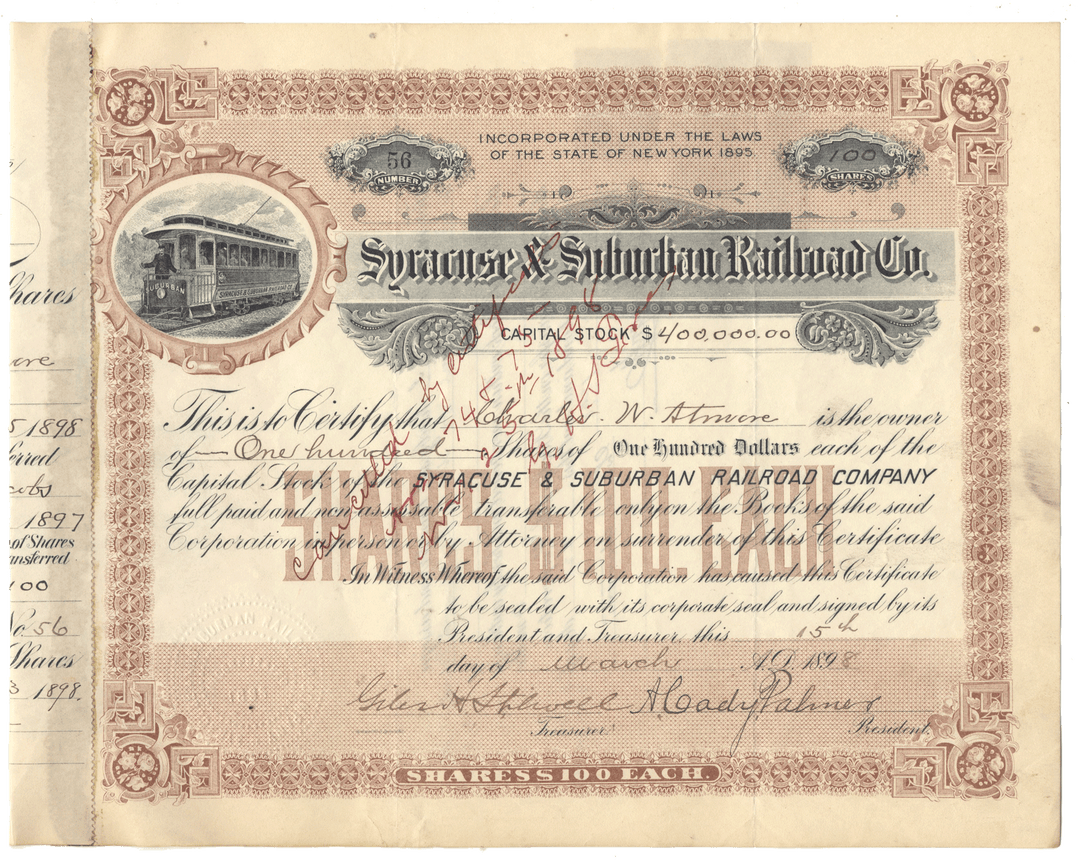 Shares
5 1898
1897
of Shares
100
No 56
Shares
3 1898.
INCORPORATED UNDER THE LAWS
OF THE STATE OF NEW YORK 1895
56
NUMBER
100
SHARES
SUBURBAN
SYRACUSE & SUBURBAN RAILROAD CO.
Syracuse & Suburban Railroad Co.
CAPITAL STOCK $400,000.00
This is to Certify that Charles W. Atmore is the owner
of One hundred Shares of One Hundred Dollars each of the
Capital Stock of the SYRACUSE & SUBURBAN RAILROAD COMPANY
full paid and non assessable transferable only on the Books of the said
Corporation in person or by Attorney on surrender of this Certificate
SHARES $100. EACH
In Witness Whereof, the said Corporation has caused this Certificate
to be sealed with its corporate seal and signed by its
President and Treasurer, this 15th
day of March A.D. 1898
Giles H Stilwell A Cady Palmer
Treasurer President.
SHARES $100 EACH.
cancelled by
74 & 75
25th, 1898